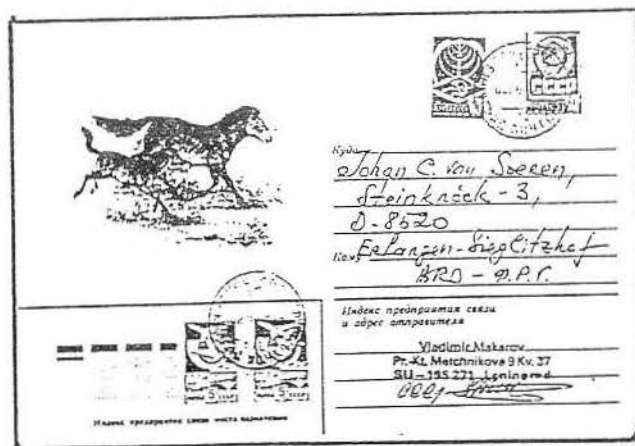 СССР
Куда
Johan C. von Soeren,
Steinknöck - 3,
D-8520
Кому Erlangen-Sieglitzhof
BRD - Ф.Р.Г.
Индекс предприятия связи
и адрес отправителя
Vladimir Makarov
Pr.-Kt. Metchnikova 9 Kv. 37
SU-195 271 Leningrad
СССР
5
5
Индекс предприятия связи места назначения